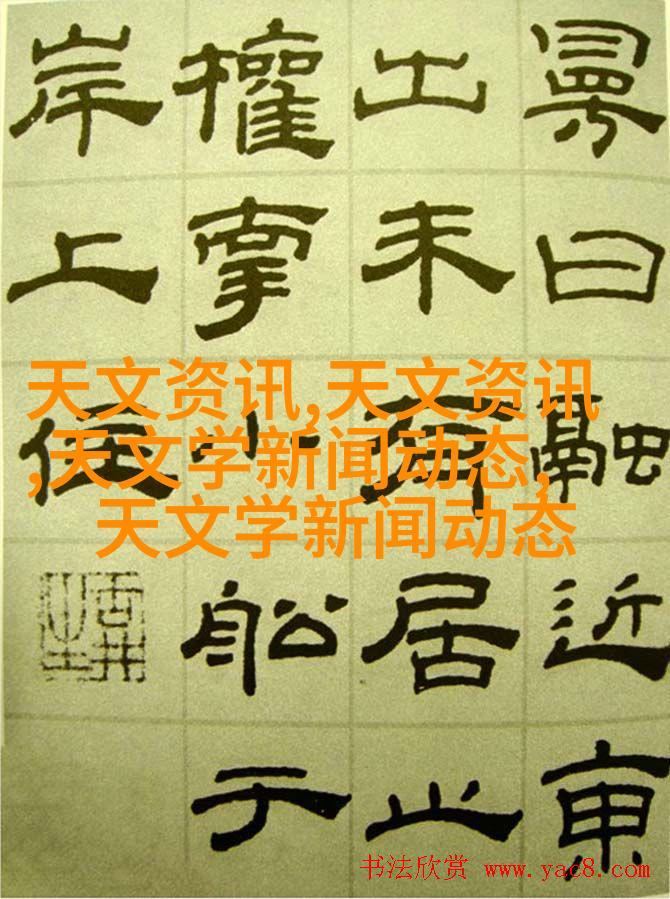 曰融近東
出未有居止
權小舩于
岸上住
天文资讯,天文资讯
,天文学新闻动态,
天文学新闻动态
书法欣赏 www.yac8.com